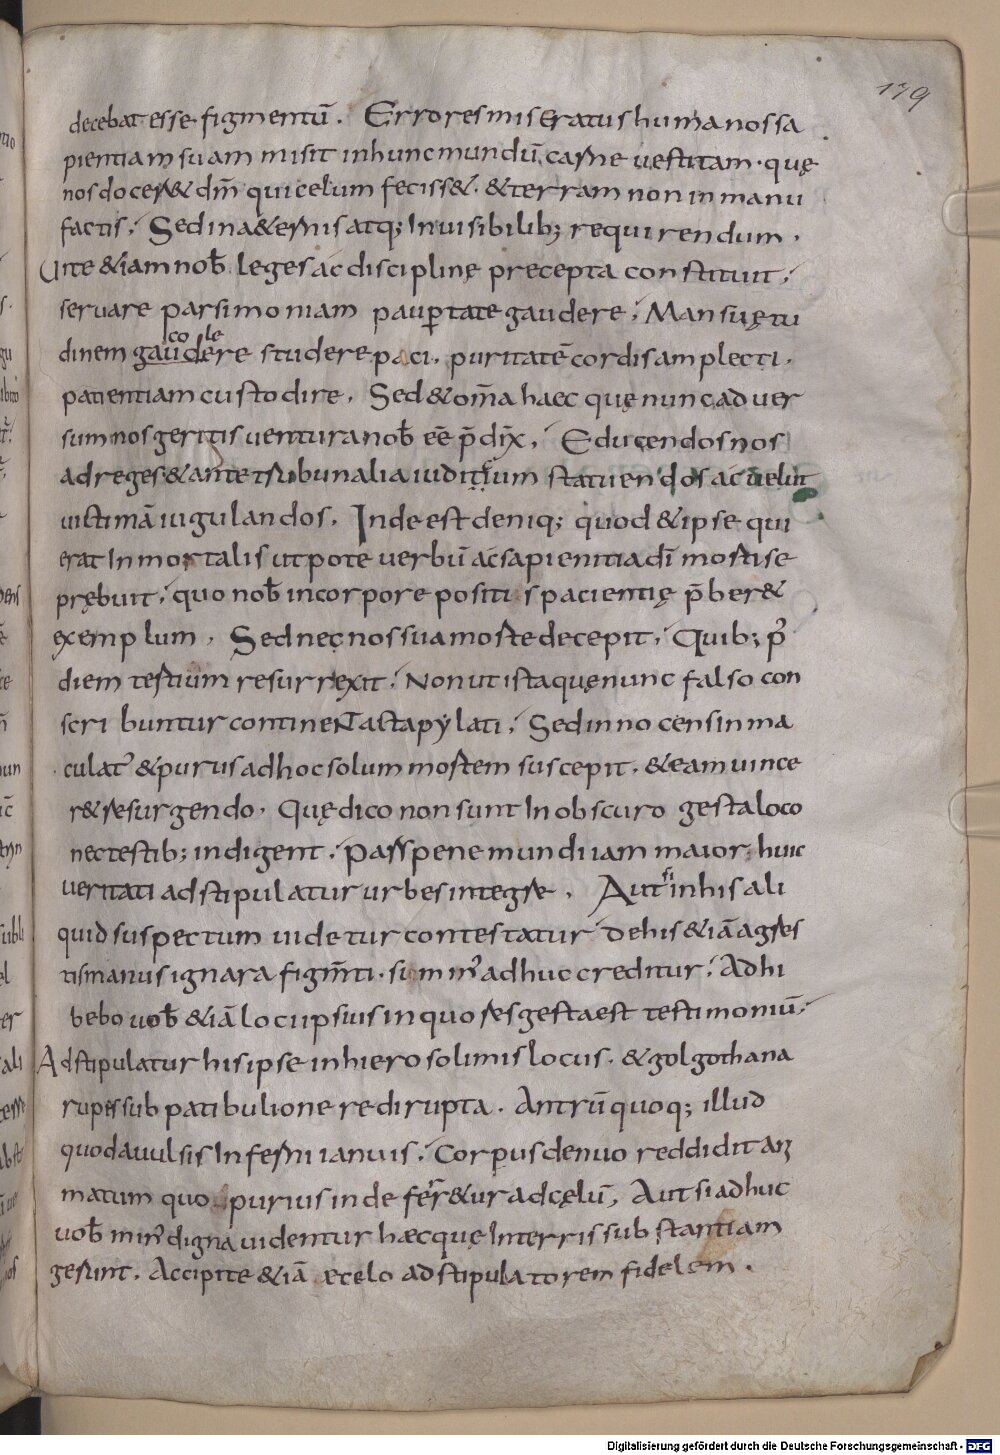 179
decebat esse figmentū. Errores miseratus humanos sa
pientiam suam misit in hunc mundū, carne uestitam. quę
nos docer& dm̄ qui celum feciss&. & terram non in manu
factis. Sed in a&ernis atq; Inuisibilib; requirendum.
Uite &iam nob̄ leges ac disciplinę precepta constituit.
seruare parsimoniam paup̱tate gaudere. Mansuętu
co le
dinem gaudere studere paci. puritatē cordis amplecti.
patientiam custodire. Sed & om̄a haec quę nunc aduer
sum nos geritis uentura nob̄ eē p̄dix̄. Educendos nos
ad reges & ante tribunalia iuditium statuendos ac uelut
uictimā iugulandos. Inde est deniq; quod & ipse qui
erat Inmortalis utpote uerbū ac sapientia dī morti se
prębuit. quo nob̄ in corpore positis pacientię p̄ber&
exemplum. Sed nec nos sua morte decepit. Quib; p᷒
diem tertium resurrexit. Non ut ista quę nunc falso con
scribuntur continent acta pylati. Sed innocens inma
culat᷒ & purus ad hoc solum mortem suscepit. & eam uince
r& resurgendo. Quę dico non sunt In obscuro gesta loco
nec testib; indigent. Pars pene mundi iam maior huic
ueritati adstipulatur urbes integre. Aut si in his ali
quid suspectum uidetur contestatur de his &iā agres
tis manus ignara figm̄ti. si min᷒ adhuc creditur. Adhi
bebo uob̄ &iā loci ipsius in quo res gesta est testimoniū.
Adstipulatur his ipse in hierosolimis locus. & golgothana
rupes sub patibuli onere dirupta. Antrū quoq; illud
quod auulsis Inferni ianuis. Corpus denuo reddidit ani
matum quo purius inde ferr&ur ad cęlū, Aut si adhuc
uob̄ min᷒ digna uidentur hæc quę Interris substantiam
gerunt. Accipite &iā e celo adstipulatorem fidelem.
Digitalisierung gefördert durch die Deutsche Forschungsgemeinschaft - DFG